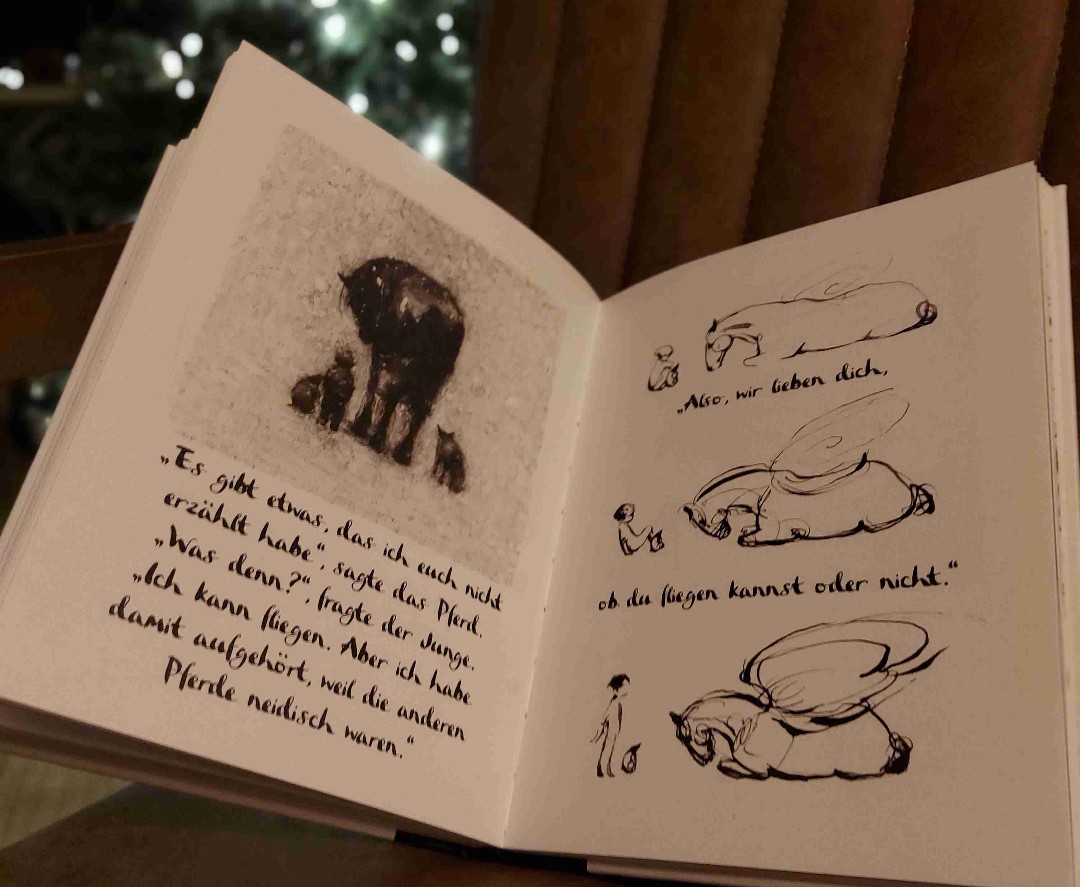 „Es gibt etwas, das ich euch nicht
erzählt habe“, sagte das Pferd.
„Was denn?“, fragte der Junge.
„Ich kann fliegen. Aber ich habe
damit aufgehört, weil die anderen
Pferde neidisch waren.“
„Also, wir lieben dich,
ob du fliegen kannst oder nicht.“